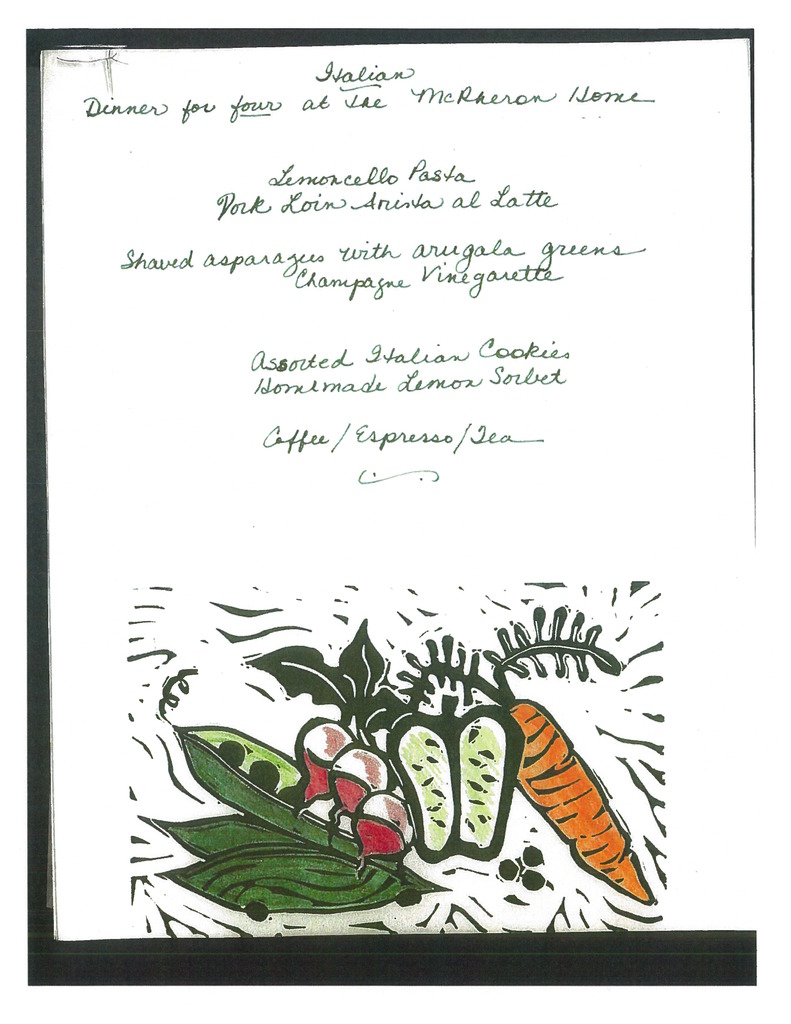 Italian
Dinner for four at the McPheron Home
Lemoncello Pasta
Pork Loin Arista al Latte
Shaved asparagus with arugala greens
Champagne Vinegarette
Assorted Italian Cookies
Homemade Lemon Sorbet
Coffee/Espresso/Tea